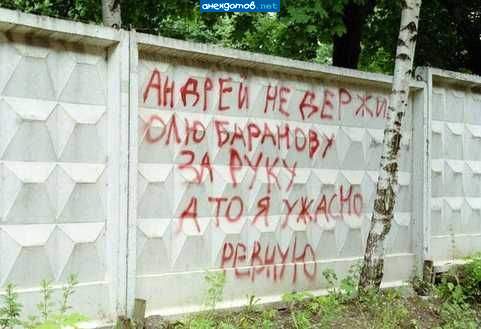 анекдотов.net
АНДРЕЙ НЕ ДЕРЖИ
ОЛЮ БАРАНОВУ
ЗА РУКУ
А ТО Я УЖАСНО
РЕВНУЮ